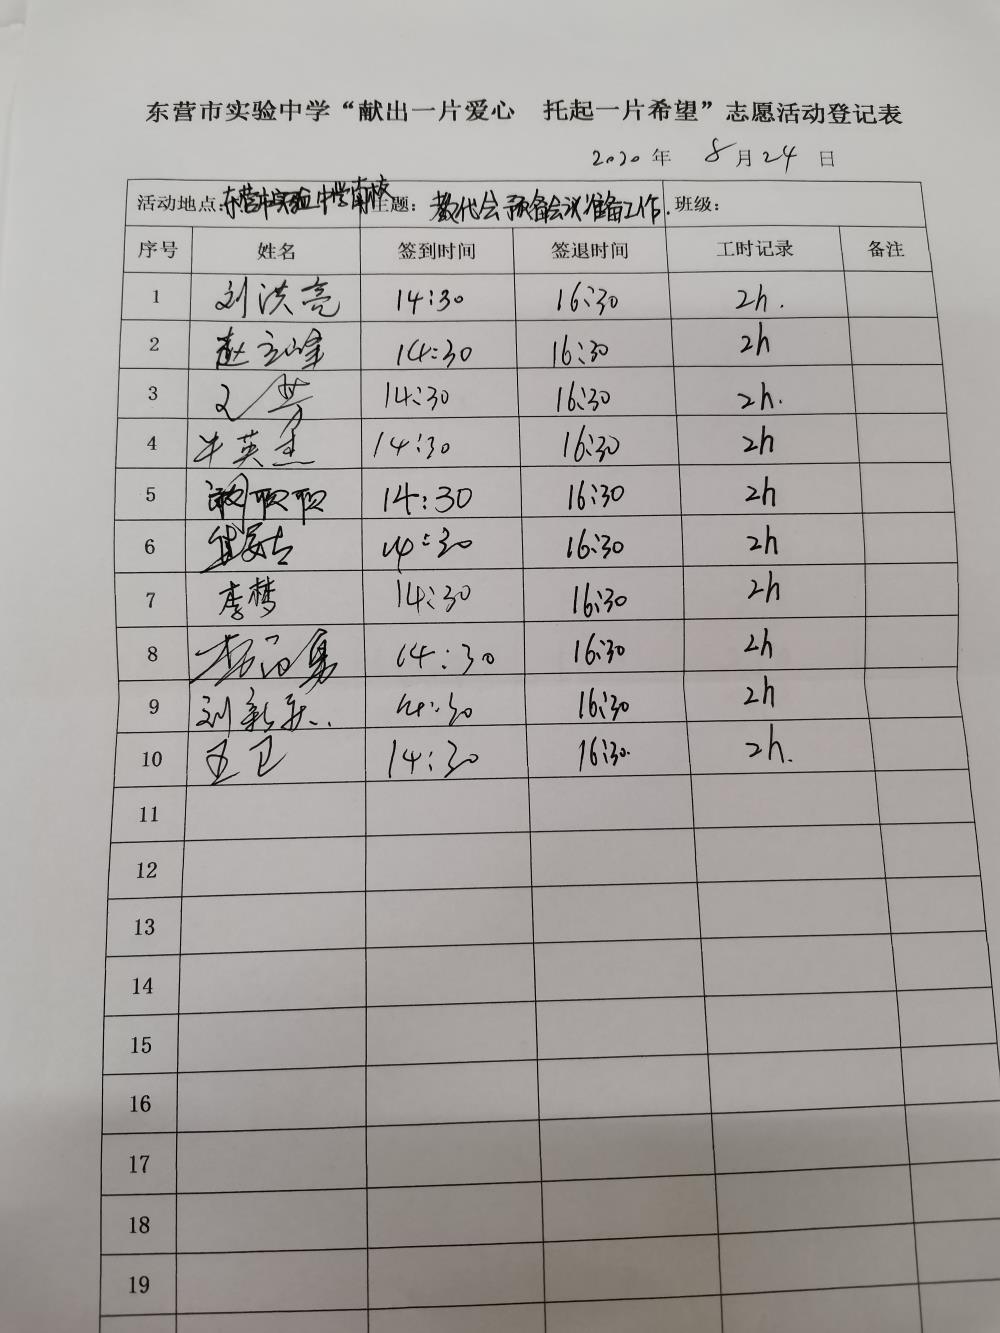 东营市实验中学“献出一片爱心 托起一片希望”志愿活动登记表
2020 年 8 月 24 日
活动地点: 东营市实验中学南校 主题: 教代会预备会议准备工作. 班级:
序号 姓名 签到时间 签退时间 工时记录 备注
1 刘洪亮 14:30 16:30 2h.
2 赵立峰 14:30 16:30 2h
3 14:30 16:30 2h.
4 牛英杰 14:30 16:30 2h
5 14:30 16:30 2h
6 14:30 16:30 2h
7 李梦 14:30 16:30 2h
8 14:30 16:30 2h
9 刘新 14:30 16:30 2h
10 王卫 14:30 16:30. 2h.
11
12
13
14
15
16
17
18
19